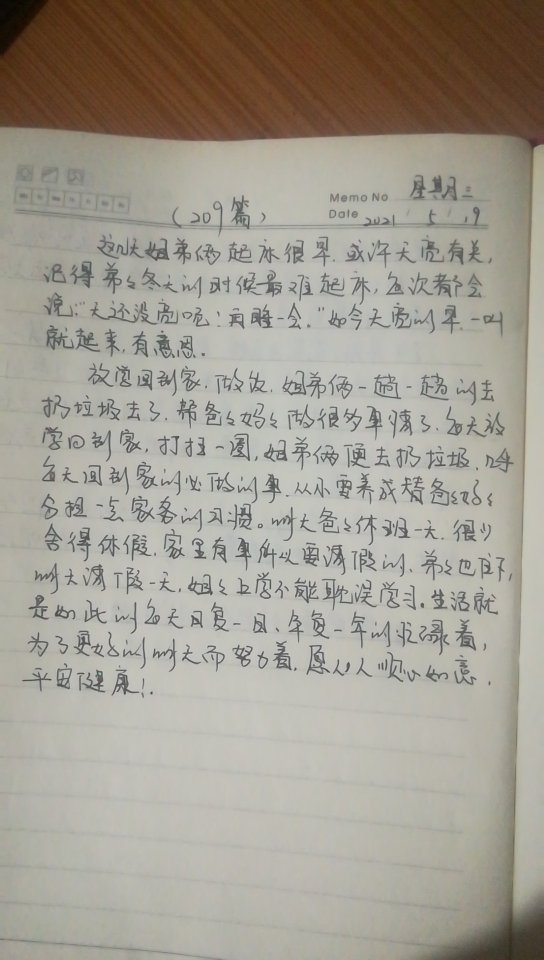 Memo No 星期三
(209篇) Date 2021 5 19
这几天姐弟俩起床很早,或许天亮有关,
记得弟弟冬天的时候最难起床,每次都会
说:"天还没亮呢!再睡一会。"如今天亮的早,一叫
就起来,有意思。
放学回到家,做饭,姐弟俩一趟一趟的去
扔垃圾去了,帮爸爸妈妈做很多事情了,每天放
学回到家,打扫一圈,姐弟俩便去扔垃圾,
每天回到家的必做的事,从小要养成替爸爸妈妈
分担一点家务的习惯。明天爸爸休班一天,很少
舍得休假,家里有事所以要请假的,弟弟也
明天请假一天,姐姐上学不能耽误学习。生活就
是如此的每天日复一日、年复一年的忙碌着,
为了更好的明天而努力着,愿人人顺心如意,
平安健康!